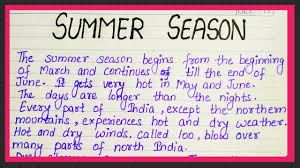 SUMMER SEASON
The summer season begins from the beginning
of March and continues till the end of
June. It gets very hot in May and June.
The days are longer than the nights.
Every part of India, except the northern
mountains, experiences hot and dry weather.
Hot and dry winds, called loo, blow over
many parts of north India.